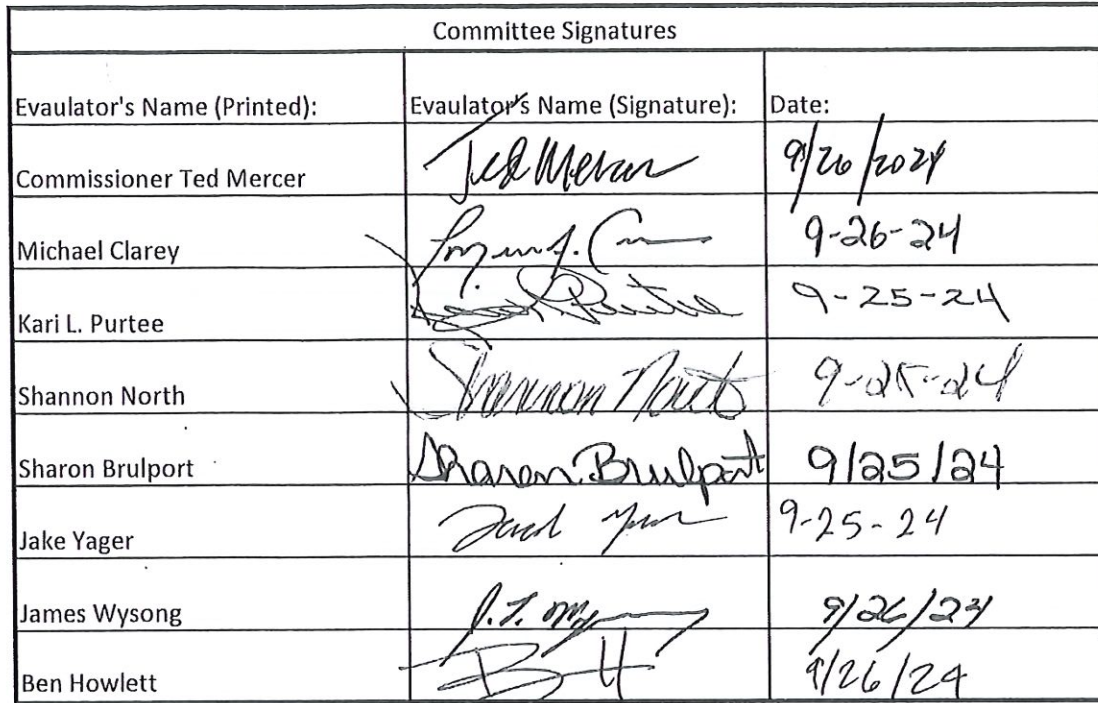 Committee Signatures
Evaulator's Name (Printed): Evaulator's Name (Signature): Date:
Commissioner Ted Mercer Ted Mercer 9/26/2024
Michael Clarey 9-26-24
Kari L. Purtee Purtee 9-25-24
Shannon North Shannon North 9-25-24
Sharon Brulport Sharon Brulport 9/25/24
Jake Yager 9-25-24
James Wysong 9/26/24
Ben Howlett 9/26/24